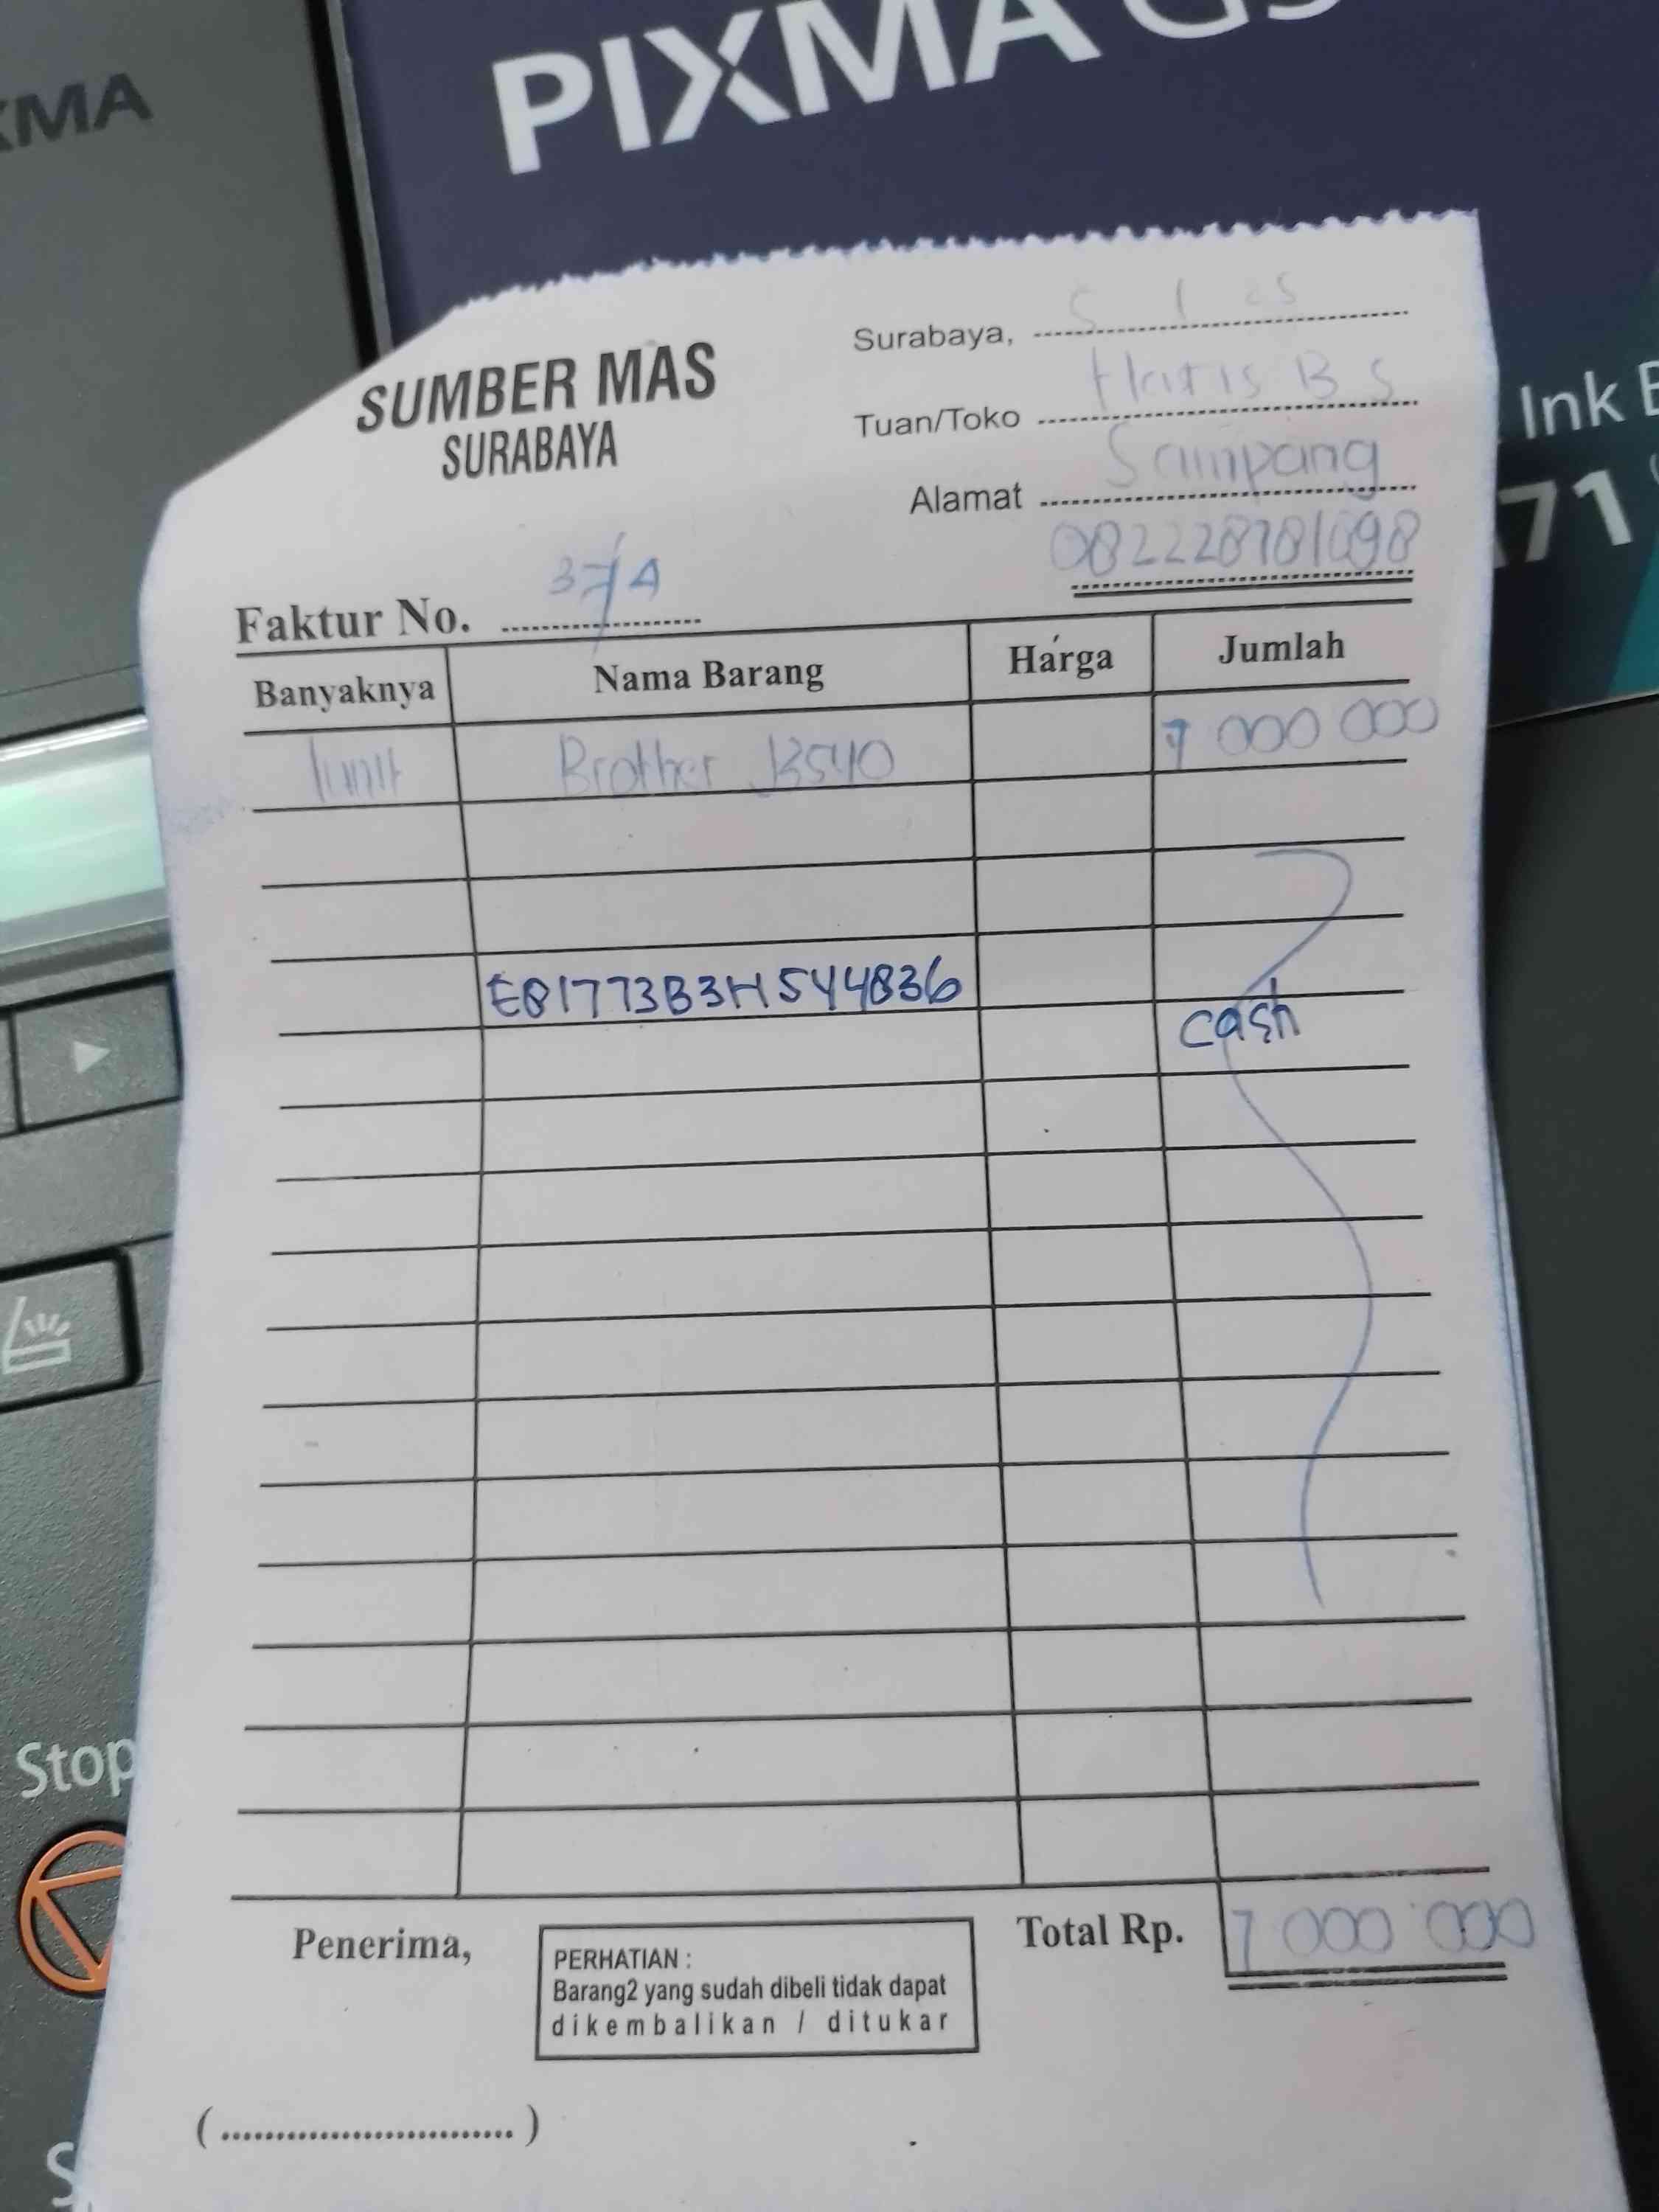 XMA
PIXMA G3
Ink
71
SUMBER MAS
SURABAYA
Surabaya, 5 1 25
Tuan/Toko Haris B S
Alamat Sampang
Faktur No. 37/A
Banyaknya Nama Barang Harga Jumlah
1 unit Brother J3540 7 000 000
E81773B3H544836
cash
Stop
Penerima, Total Rp. 7 000 000
PERHATIAN :
Barang2 yang sudah dibeli tidak dapat
dikembalikan / ditukar
(............................)